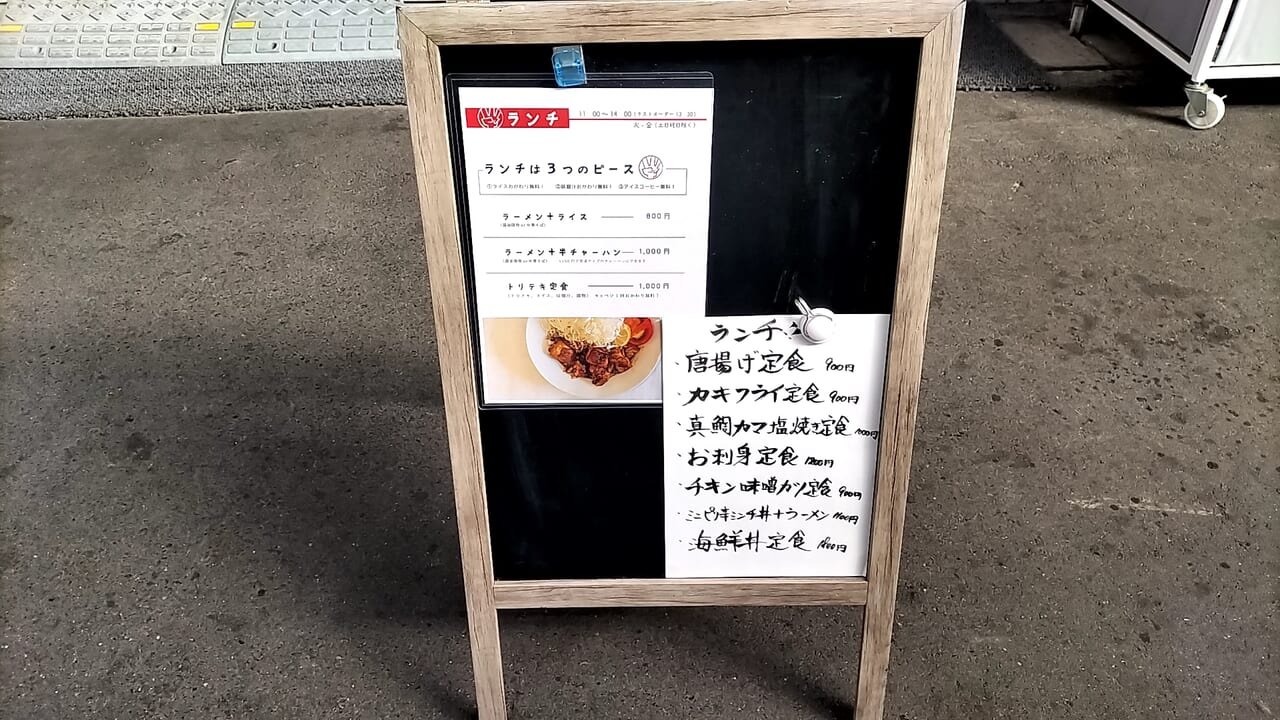 ランチ
11:00〜14:00(ラストオーダー13:30)
火-金(土日祝日除く)
ランチは3つのピース
①ライスおかわり無料! ②味噌汁おかわり無料! ③アイスコーヒー無料!
ラーメン+ライス 800円
ラーメン+半チャーハン 1,000円
トリテキ定食 1,000円
ランチ
・唐揚げ定食 900円
・カキフライ定食 900円
・真鯛カマ塩焼き定食
・お刺身定食
・チキン味噌カツ定食 900円
・ミニピリ辛ミンチ丼+ラーメン
・海鮮丼定食